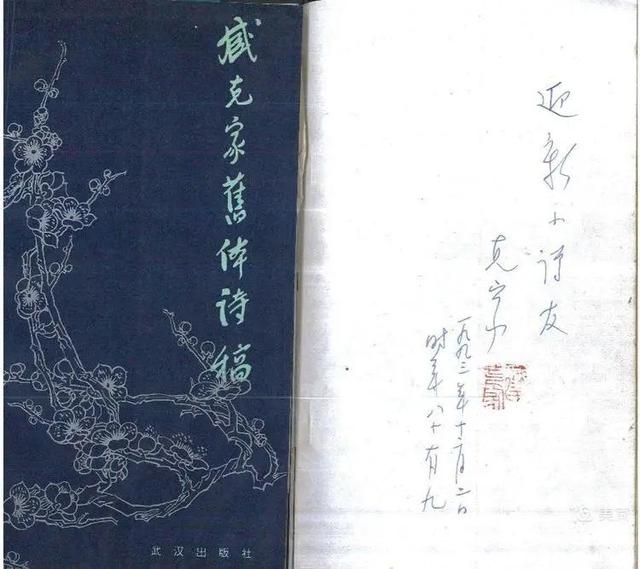 臧克家舊体诗稿
武汉出版社
迎新小诗友
克家
一九九三年十月二日
时年八十有九
美篇